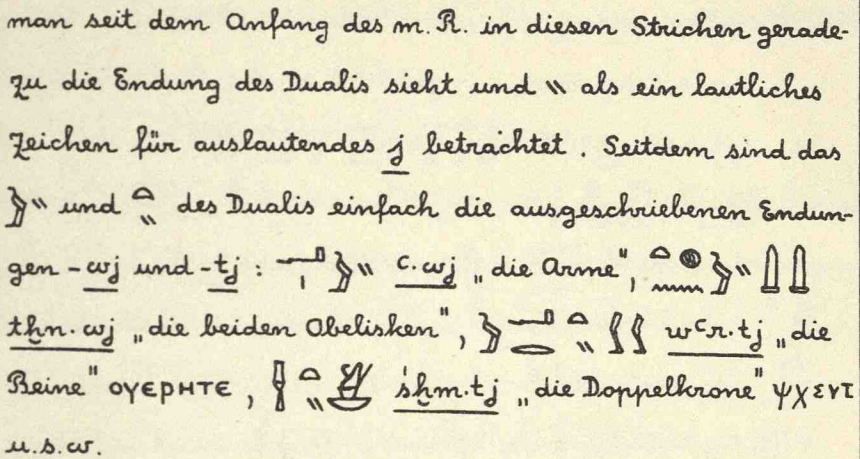 man seit dem Anfang des m. R. in diesen Strichen gerade-
zu die Endung des Dualis sieht und 𓏮 als ein lautliches
Zeichen für auslautendes j betrachtet. Seitdem sind das
𓅱𓏮 und 𓏏𓏮 des Dualis einfach die ausgeschriebenen Endun-
gen -wj und -tj : 𓂝𓏤𓅱𓏮 ꜥ.wj „die Arme", 𓏏𓐍𓈖𓅱𓏮𓉶𓉶
tḫn.wj „die beiden Obelisken", 𓅱𓂝𓂋𓏏𓏮𓂾𓂾 wꜥr.tj „die
Beine" ⲟⲩⲉⲣⲏⲧⲉ, 𓌂𓏏𓏮𓋖 śḫm.tj „die Doppelkrone" ψχεντ
u.s.w.